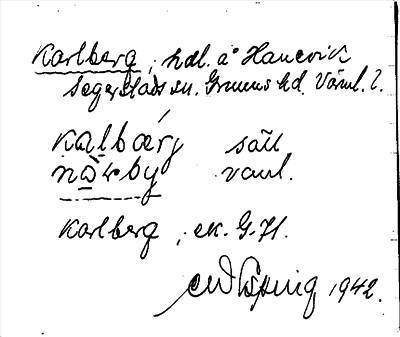 Karlberg, hdl. å Hanevik
Segerstads sn. Grums hd. Värml. l.
kalbærj säll
nòrby vanl.
Karlberg, ek. G-71.
1942.